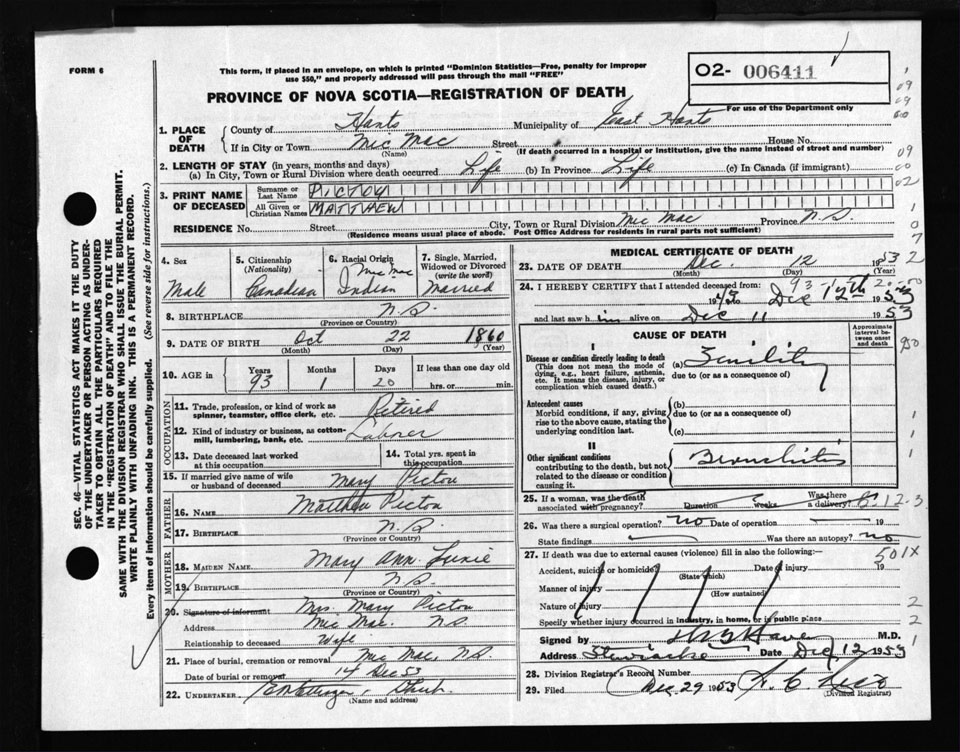 FORM 6
This form, if placed in an envelope, on which is printed "Dominion Statistics—Free, penalty for improper
use $50," and properly addressed will pass through the mail "FREE"
O2- 006411
For use of the Department only
PROVINCE OF NOVA SCOTIA—REGISTRATION OF DEATH
1. PLACE OF DEATH
County of Hants Municipality of East Hants
If in City or Town Mic Mac Street House No.
(Name) (If death occurred in a hospital or institution, give the name instead of street and number)
2. LENGTH OF STAY (in years, months and days)
(a) In City, Town or Rural Division where death occurred Life (b) In Province Life (c) In Canada (if immigrant)
3. PRINT NAME OF DECEASED
Surname or Last Name PICTOU
All Given or Christian Names MATTHEW
RESIDENCE No. Street City, Town or Rural Division Mic Mac Province N.S.
(Residence means usual place of abode. Post Office Address for residents in rural parts not sufficient)
4. Sex Male
5. Citizenship (Nationality) Canadian
6. Racial Origin Mic Mac Indian
7. Single, Married, Widowed or Divorced (write the word) Married
8. BIRTHPLACE N.S.
(Province or Country)
9. DATE OF BIRTH Oct 22 1860
(Month) (Day) (Year)
10. AGE in Years 93 Months 1 Days 20 If less than one day
hrs. or min.
OCCUPATION
11. Trade, profession, or kind of work as spinner, teamster, office clerk, etc. Retired
12. Kind of industry or business, as cotton-mill, lumbering, bank, etc. Laborer
13. Date deceased last worked at this occupation
14. Total yrs. spent in this occupation
15. If married give name of wife or husband of deceased Mary Pictou
FATHER
16. NAME Matthew Pictou
17. BIRTHPLACE N.S.
(Province or Country)
MOTHER
18. MAIDEN NAME Mary Ann
19. BIRTHPLACE N.S.
(Province or Country)
20. Signature of informant Mrs. Mary Pictou
Address Mic Mac, N.S.
Relationship to deceased Wife
21. Place of burial, cremation or removal Mic Mac, N.S.
Date of burial or removal 14 Dec 53
22. UNDERTAKER
(Name and address)
MEDICAL CERTIFICATE OF DEATH
23. DATE OF DEATH Dec. 12 1953
(Month) (Day) (Year)
24. I HEREBY CERTIFY that I attended deceased from:
19 to Dec 12th 1953
and last saw him alive on Dec 11 1953
CAUSE OF DEATH
Approximate interval between onset and death
I
Disease or condition directly leading to death
(This does not mean the mode of dying, e.g., heart failure, asthenia, etc. It means the disease, injury, or complication which caused death.)
(a) Senility
due to (or as a consequence of)
Antecedent causes
Morbid conditions, if any, giving rise to the above cause, stating the underlying condition last.
(b)
due to (or as a consequence of)
(c)
II
Other significant conditions
contributing to the death, but not related to the disease or condition causing it.
Bronchitis
25. If a woman, was the death associated with pregnancy? Duration weeks Was there a delivery?
26. Was there a surgical operation? no Date of operation 19
State findings Was there an autopsy? no
27. If death was due to external causes (violence) fill in also the following:—
Accident, suicide or homicide? Date of injury 19
(State which)
Manner of injury
(How sustained)
Nature of injury
Specify whether injury occurred in industry, in home, or in public place
Signed by M.D.
Address Stewiacke Date Dec 12 1953
28. Division Registrar's Record Number
29. Filed Dec 29 1953
(Division Registrar)
SEC. 46—VITAL STATISTICS ACT MAKES IT THE DUTY
OF THE UNDERTAKER OR PERSON ACTING AS UNDER-
TAKER TO OBTAIN ALL THE PARTICULARS REQUIRED
IN THE "REGISTRATION OF DEATH" AND TO FILE THE
SAME WITH THE DIVISION REGISTRAR WHO SHALL ISSUE THE BURIAL PERMIT.
WRITE PLAINLY WITH UNFADING INK. THIS IS A PERMANENT RECORD.
Every item of information should be carefully supplied. (See reverse side for instructions.)